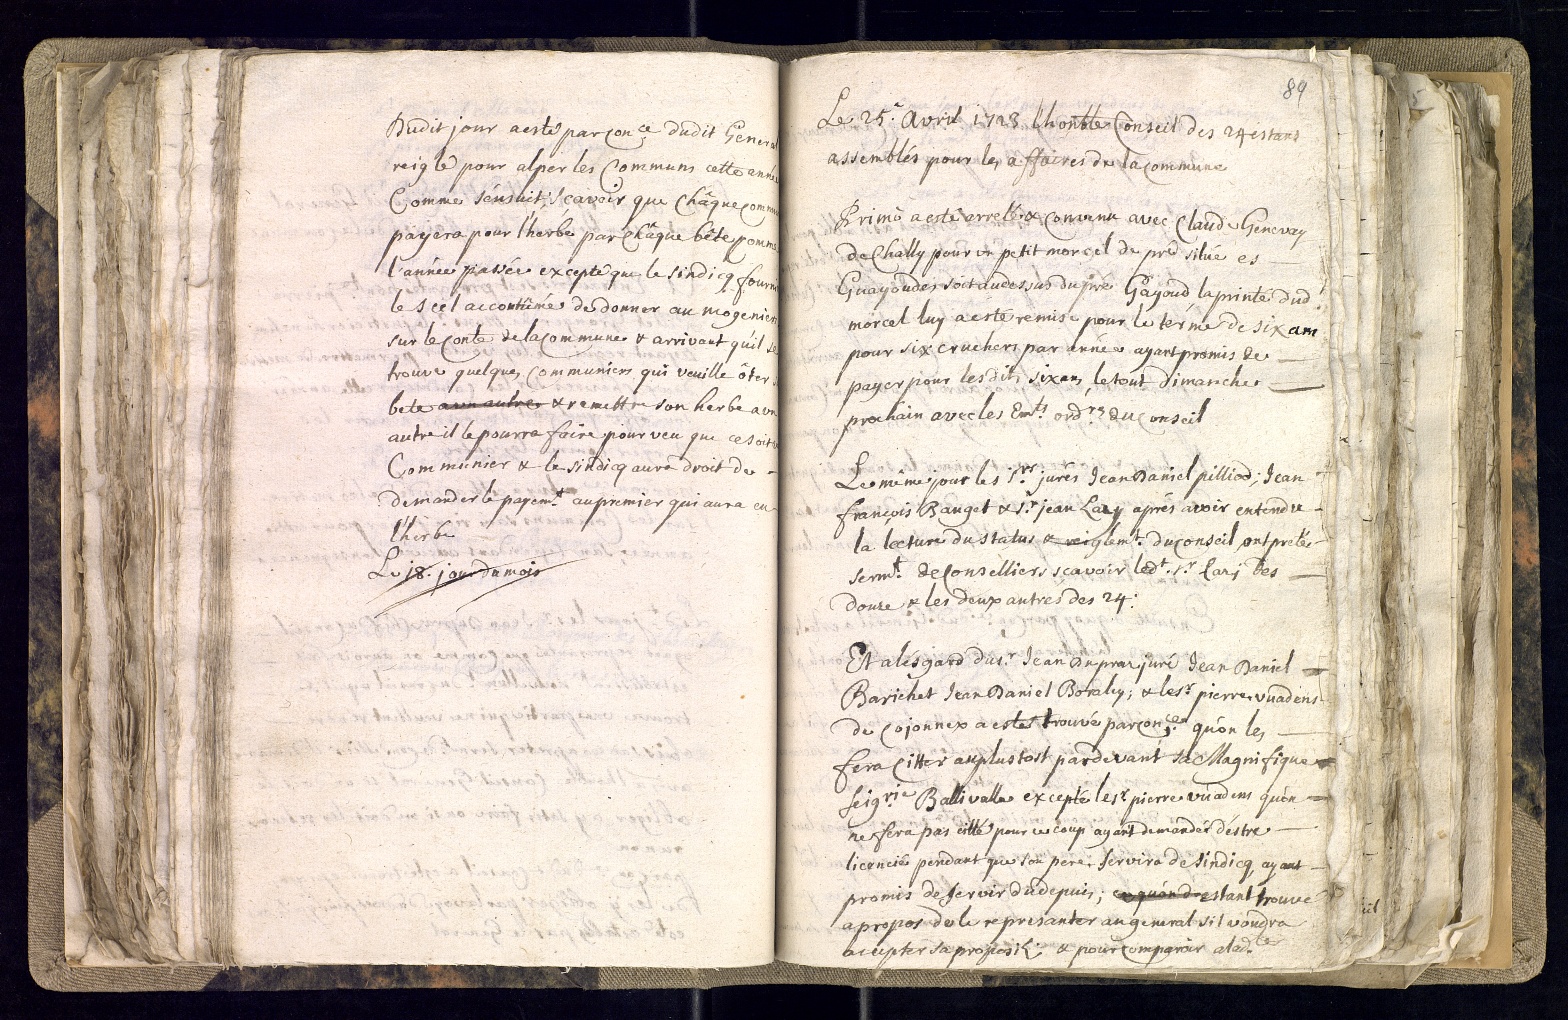 Dudit jour a esté par con.ce dudit General
reiglé pour alper les Communs cette année
Comme sénsuit; scavoir que Châque commu
payera pour l'herbe par Châque bête comme
l'année passée excepte que le sindicq fourni
le scel accoutûmé de donner au mogenier
sur le Conte de la Commune & arrivant qu'il se
trouve quelque Communiers qui veuille ôter sa
bete aun autres & remettre son herbe a un
autre il le pourra faire pourveu que ce soit
Communier & le sindicq aura droit de
demander le payem.t au premier qui aura eu
l'herbe
Le 18. jour du mois
89
Le 25.e Avril 1723 l'honble Conseil des 24 estans
assemblés pour les affaires de la Commune
Primò a esté arreté & Convenu avec Claude Genevay
de Chally pour un petit morcel de pré situé es
Guayoudes soit audessus du pré Gayoud la printé dud.
morcel luy a esté remise pour le terme de six ans
pour six cruchers par année ayant promis de
payer pour lesdits six ans, le tout Dimanche
prochain avec les Em.ts ord.rs du Conseil
Le même jour les S.rs jurés Jean Daniel pillivd; Jean
françois Banget & S.r jean Lary aprés avoir entendu
la lecture du Status & reiglem.t du Conseil ont prétés
serm.t de Conselliers scavoir led.t S.r Lary des
Douze & les deux autres des 24:
Et a lésgard du S.r Jean Duprar juré Jean Daniel
Barichet Jean Daniel Boraley; & le S.r pierre vuadens
de Cojonnex a esté trouvé par con.ce qu'on les
fera Citter au plustost pardevant sa Magnifique
seig.rie Ballivalle excepté le S.r pierre vuadens quon
ne fera pas citté pour ce coup ayant demander déstre
licenciés pendant que son pere servira de sindicq ayant
promis de servir du depuis; et quon de estant trouvé
apropos de le represanter au general sil voudra
accepter sa proposit.n & pour Comparoir a lad.te